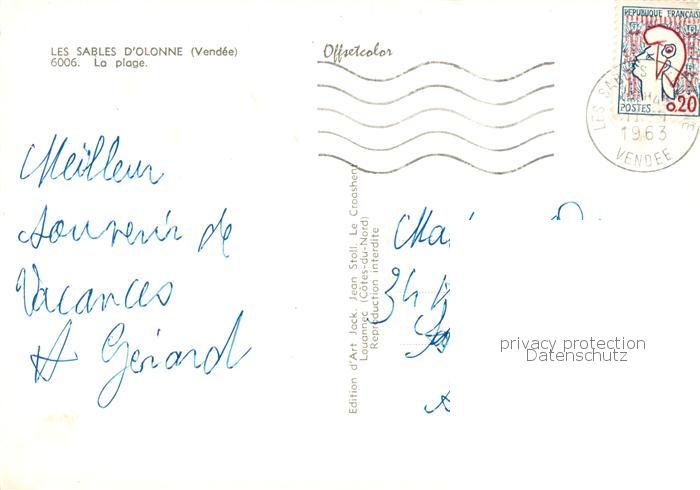 LES SABLES D'OLONNE (Vendée)
6006. La plage.
Offsetcolor
REPUBLIQUE FRANÇAISE
POSTES 0,20
LES SA
1963
VENDEE
Meilleur
Souvenir de
Vacances
A Gérard
Edition d'Art Jack. Jean Stoll. Le Croashent
Louannec (Côtes-du-Nord)
Reproduction interdite
Ma
34
privacy protection
Datenschutz